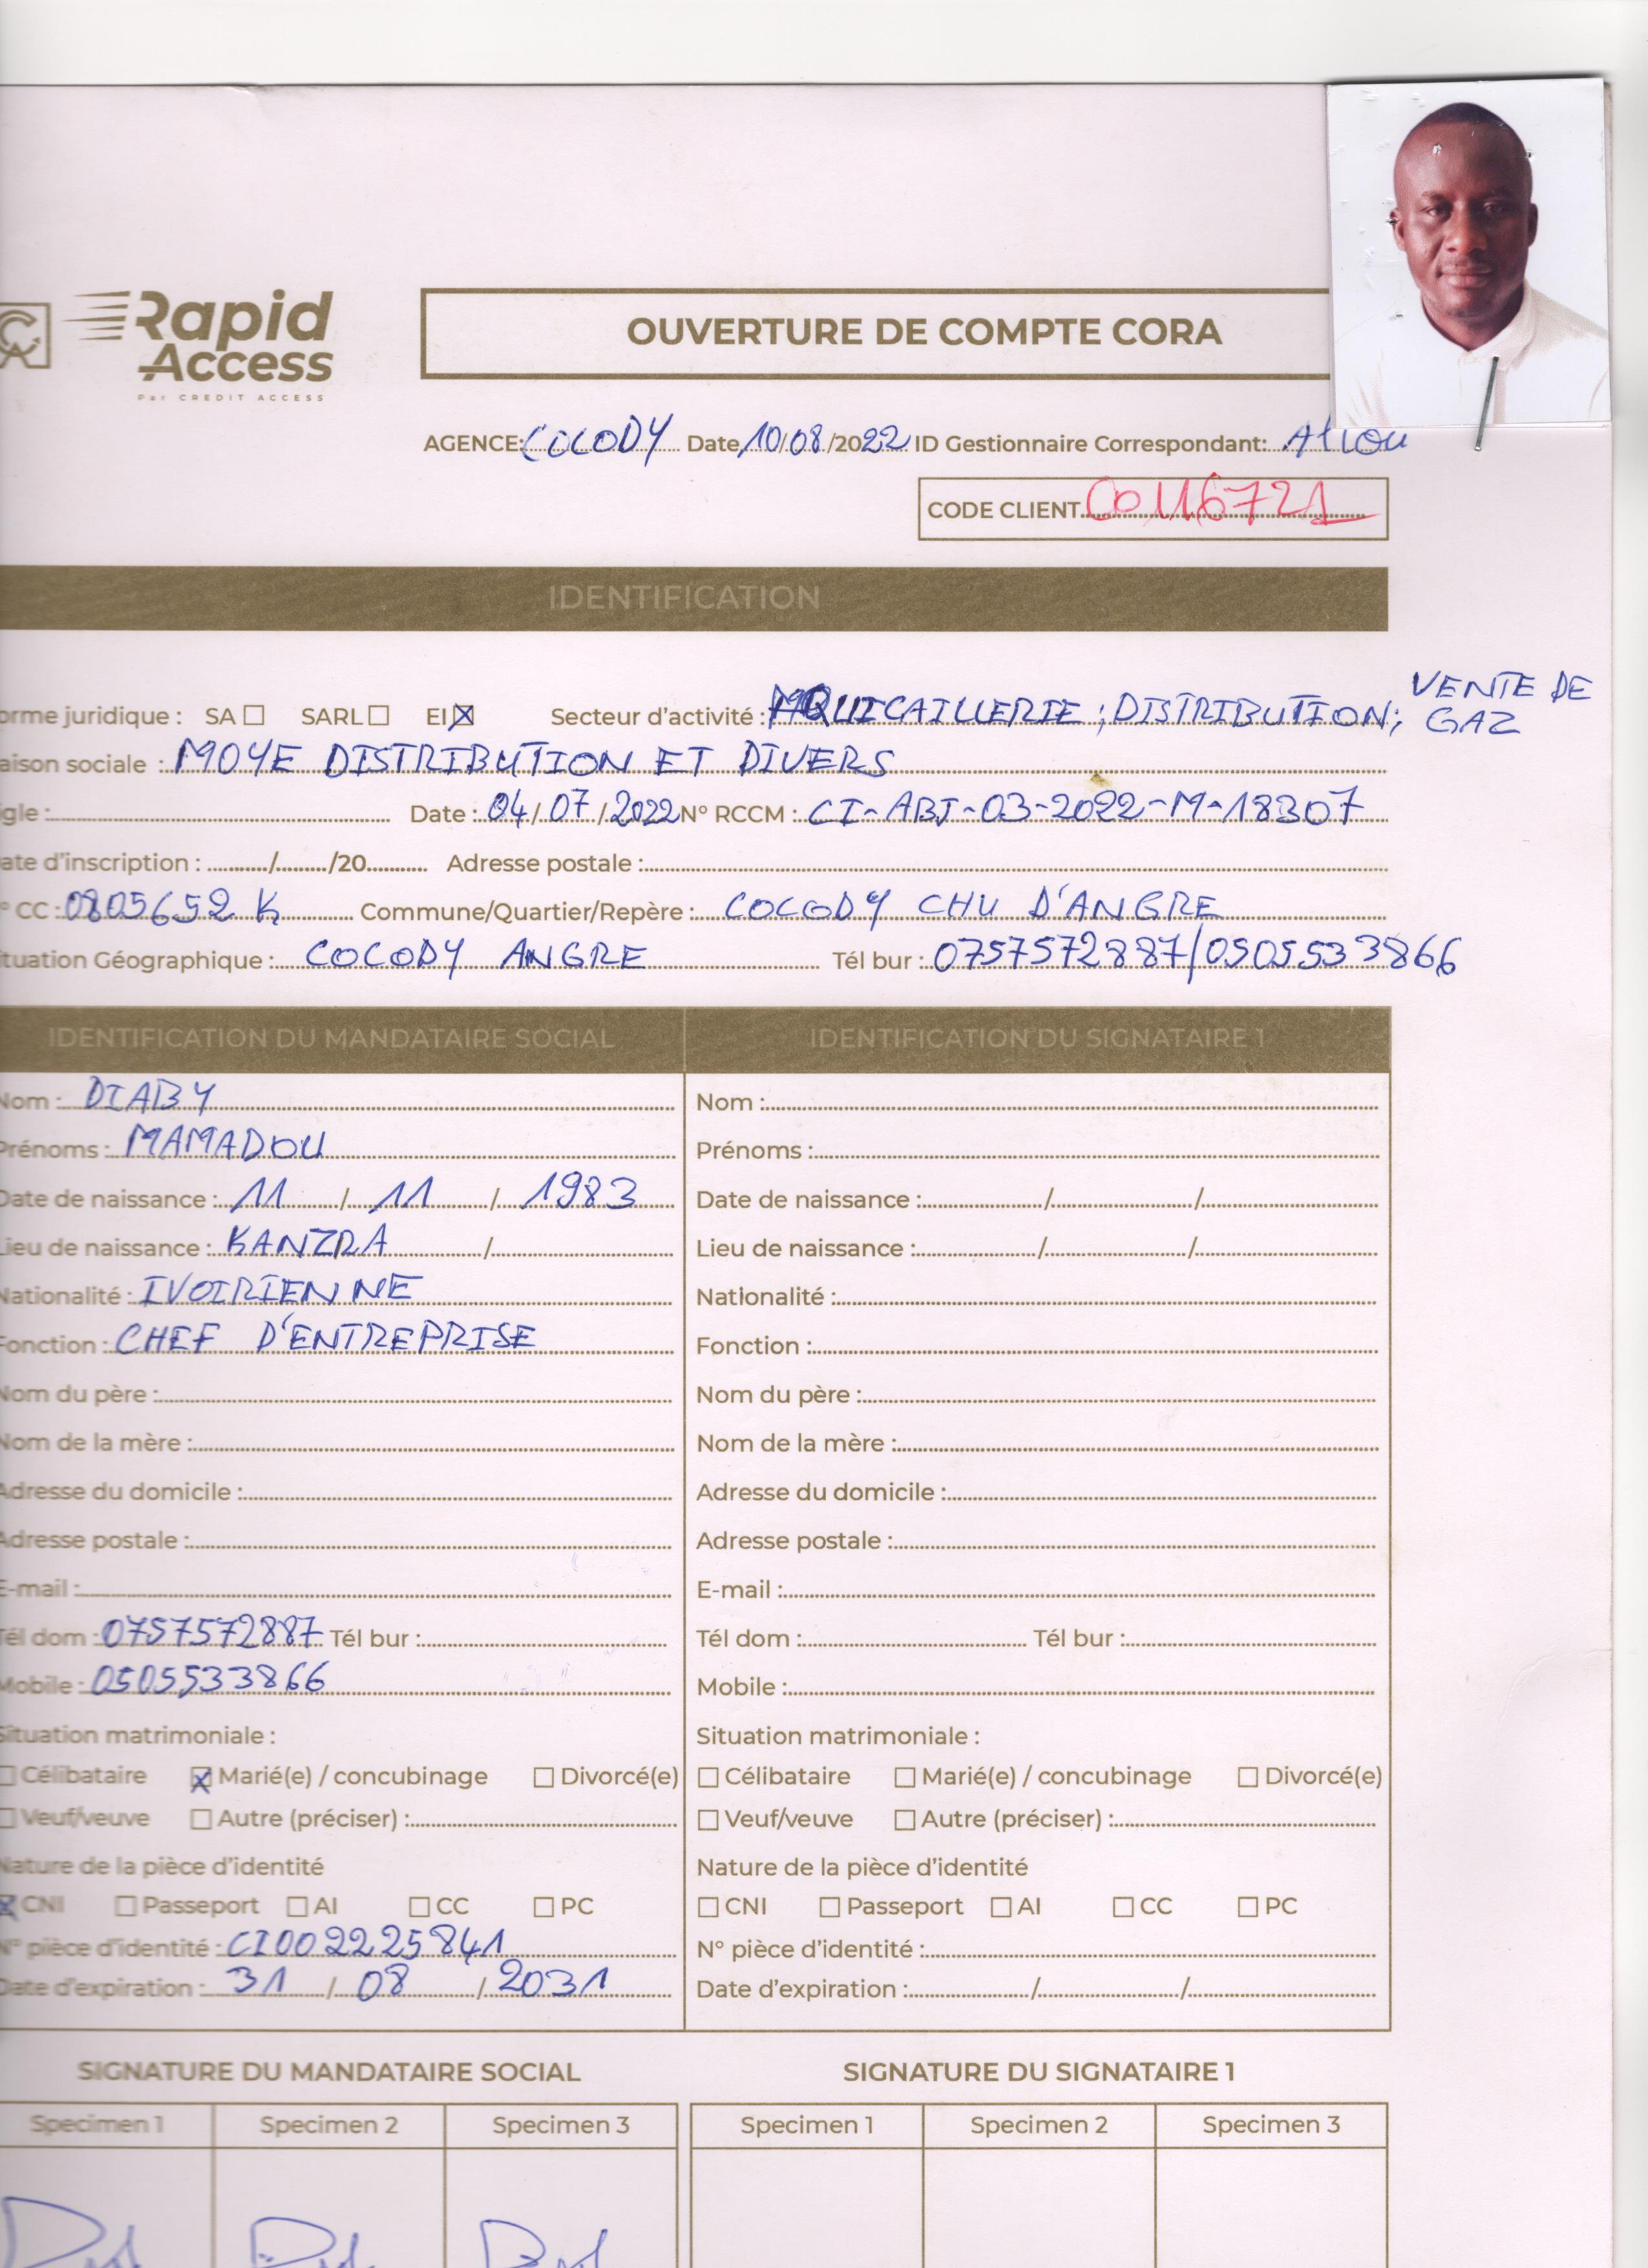 CA Rapid
Access
Par CREDIT ACCESS
OUVERTURE DE COMPTE CORA
AGENCE: COCODY Date 10/08/2022 ID Gestionnaire Correspondant:
CODE CLIENT CO116721
IDENTIFICATION
orme juridique : SA ☐ SARL ☐ EI ☒ Secteur d'activité : QUICAILLERIE ; DISTRIBUTION; VENTE DE
GAZ
aison sociale : MOYE DISTRIBUTION ET DIVERS
gle : Date : 04/07/2022 N° RCCM : CI-ABJ-03-2022-M-18307
ate d'inscription : ......../......../20........ Adresse postale :
° CC : 0805652 K Commune/Quartier/Repère : COCODY CHU D'ANGRE
tuation Géographique : COCODY ANGRE Tél bur : 0757572887/0505533866
IDENTIFICATION DU MANDATAIRE SOCIAL
Nom : DIABY
Prénoms : MAMADOU
Date de naissance : 11 / 11 / 1983
Lieu de naissance : KANZRA /
Nationalité : IVOIRIENNE
Fonction : CHEF D'ENTREPRISE
Nom du père :
Nom de la mère :
Adresse du domicile :
Adresse postale :
E-mail :
Tél dom : 0757572887 Tél bur :
Mobile : 0505533866
Situation matrimoniale :
☐ Célibataire ☒ Marié(e) / concubinage ☐ Divorcé(e)
☐ Veuf/veuve ☐ Autre (préciser) :
Nature de la pièce d'identité
☒ CNI ☐ Passeport ☐ AI ☐ CC ☐ PC
N° pièce d'identité : CI002225841
Date d'expiration : 31 / 08 / 2031
IDENTIFICATION DU SIGNATAIRE 1
Nom :
Prénoms :
Date de naissance : / /
Lieu de naissance : / /
Nationalité :
Fonction :
Nom du père :
Nom de la mère :
Adresse du domicile :
Adresse postale :
E-mail :
Tél dom : Tél bur :
Mobile :
Situation matrimoniale :
☐ Célibataire ☐ Marié(e) / concubinage ☐ Divorcé(e)
☐ Veuf/veuve ☐ Autre (préciser) :
Nature de la pièce d'identité
☐ CNI ☐ Passeport ☐ AI ☐ CC ☐ PC
N° pièce d'identité :
Date d'expiration : / /
SIGNATURE DU MANDATAIRE SOCIAL
Specimen 1 Specimen 2 Specimen 3
SIGNATURE DU SIGNATAIRE 1
Specimen 1 Specimen 2 Specimen 3